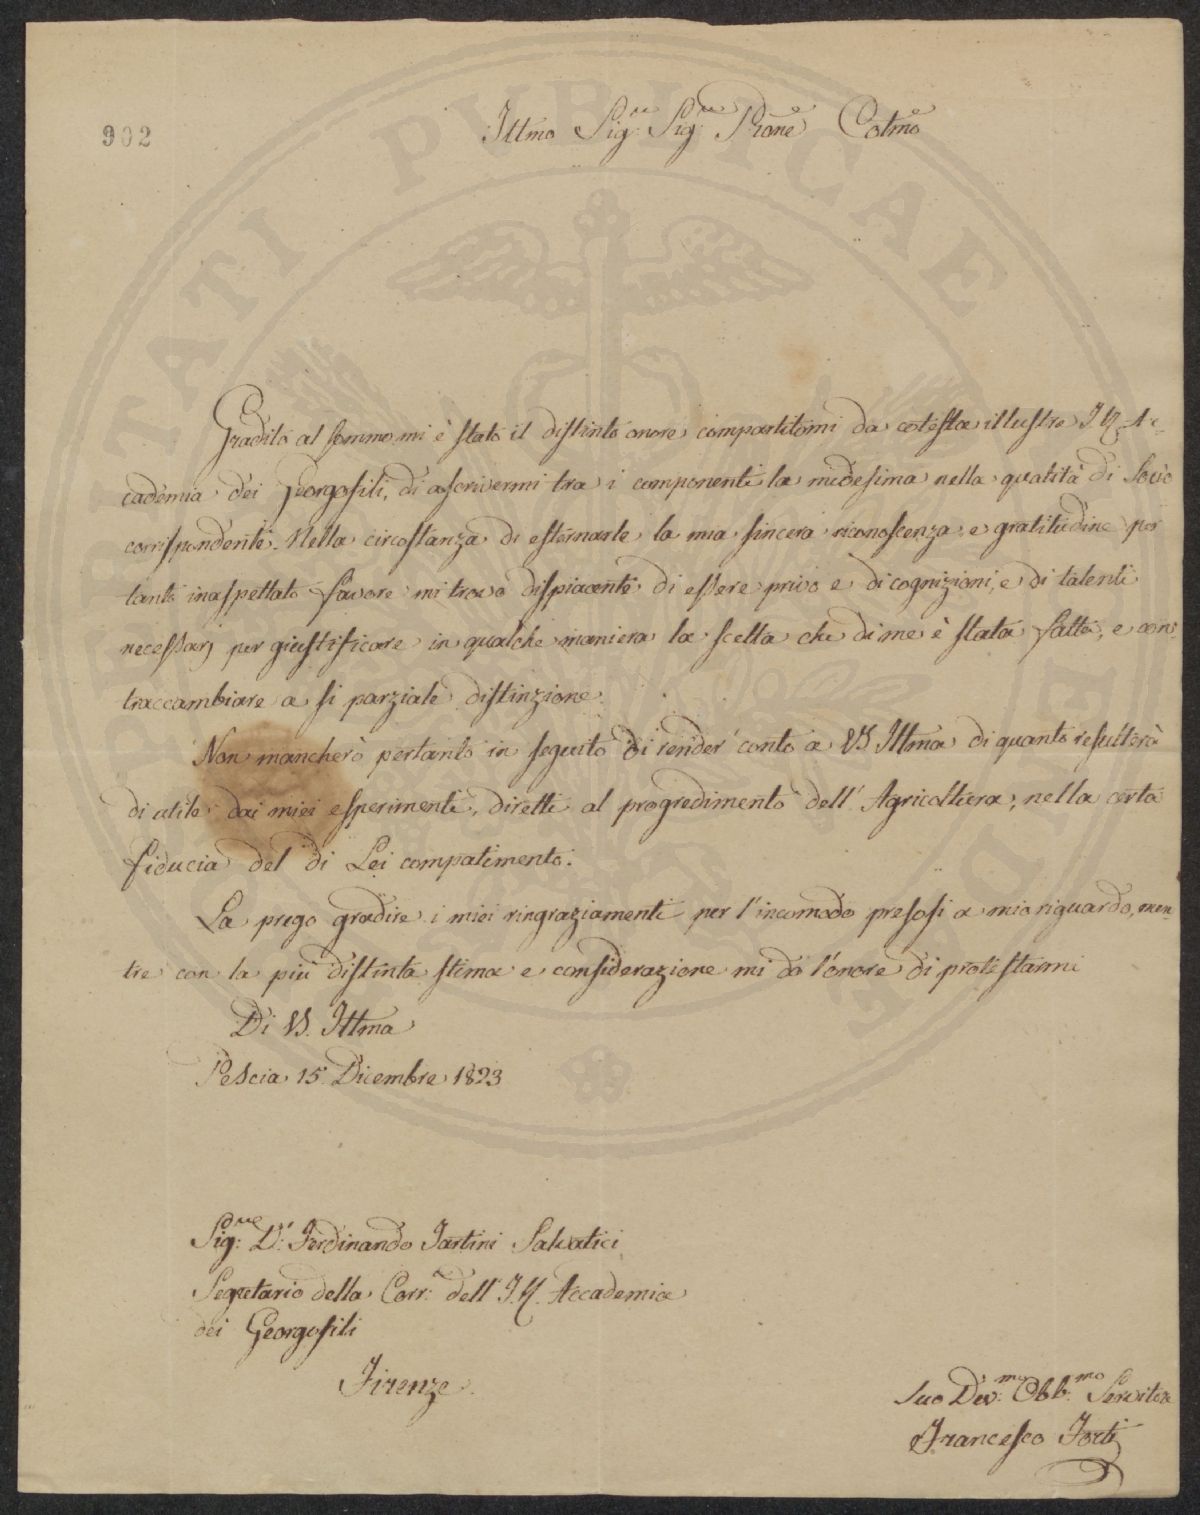 902
Illmo Sig.re Sig.re Prone Colmo
Gradito al sommo mi è stato il distinto onore compartitomi da cotesta illustre I. R. Ac-
cademia dei Georgofili, di ascrivermi tra i componenti la medesima nella qualità di Socio
corrispondente. Nella circostanza di esternarle la mia sincera riconoscenza, e gratitudine per
tanto inaspettato favore mi trovo dispiacente di essere privo e di cognizioni, e di talenti
necessarj per giustificare in qualche maniera la scelta che di me è stata fatta, e con-
traccambiare a si parziale distinzione.
Non mancherò pertanto in seguito di render conto a VS Illma di quanto resulterà
di utile dai miei esperimenti, diretti al progredimento dell' Agricoltura, nella certa
fiducia del di Lei compatimento.
La prego gradire i miei ringraziamenti per l'incomodo presosi a mio riguardo, men-
tre con la più distinta stima e considerazione mi do l'onore di protestarmi
Di VS. Illma
Pescia 15 Dicembre 1823
Sig.re D.r Ferdinando Tartini Salvatici
Segretario della Corr.a dell' I. R. Accademia
dei Georgofili
Firenze
Suo Dev.mo Obb.mo Servitore
Francesco Forti
PUBLICAE